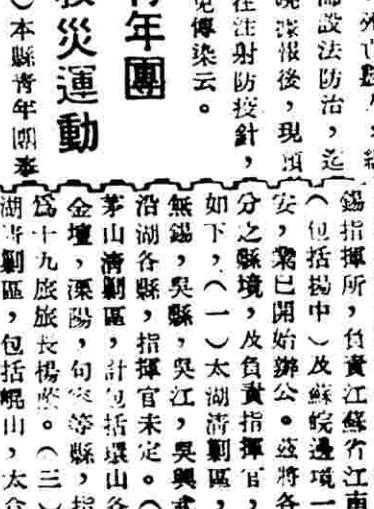 死亡
設法防治，迄
報後，現預
在注射防疫針，
免傳染云。
青年團
救災運動
）本縣青年團奉
錫指揮所，負責江蘇省江南
（包括揚中）及蘇皖邊境一
安，業已開始辦公。茲將各
分之縣境，及負責指揮官，
如下，（一）太湖清剿區，
無錫，吳縣，吳江，吳興武
沿湖各縣，指揮官未定。（
茅山清剿區，計包括環山各
金壇，溧陽，句容等縣，指
爲十九旅旅長楊。（三）
湖清剿區，包括崑山，太倉